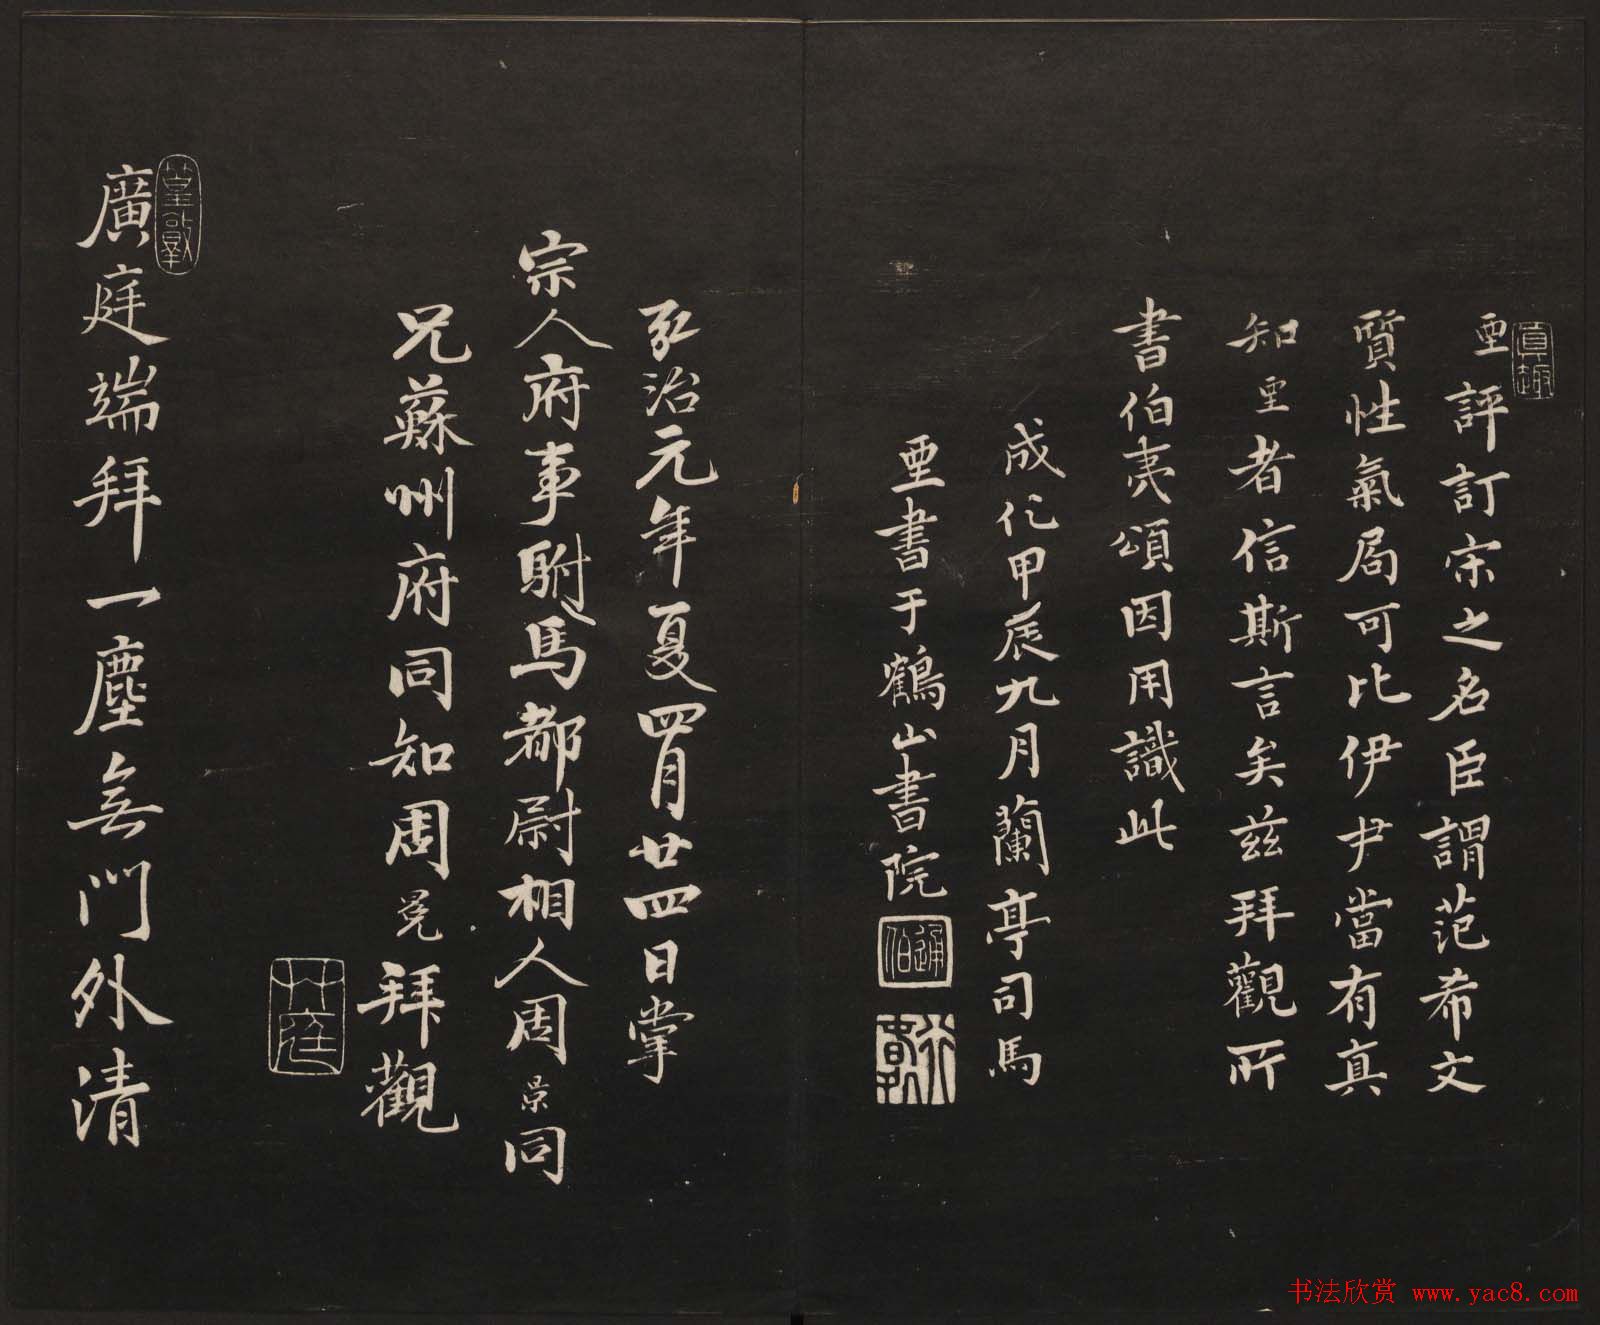 真趣
垔評訂宋之名臣謂范希文
質性氣局可比伊尹當有真
知垔者信斯言矣茲拜觀所
書伯夷頌因用識此
成化甲辰九月蘭亭司馬
垔書于鶴山書院
通伯
弘治元年夏四月廿四日掌
宗人府事駙馬都尉相人周景同
兄蘇州府同知周冕拜觀
篁墩
廣庭端拜一塵無門外清
书法欣赏 www.yac8.com